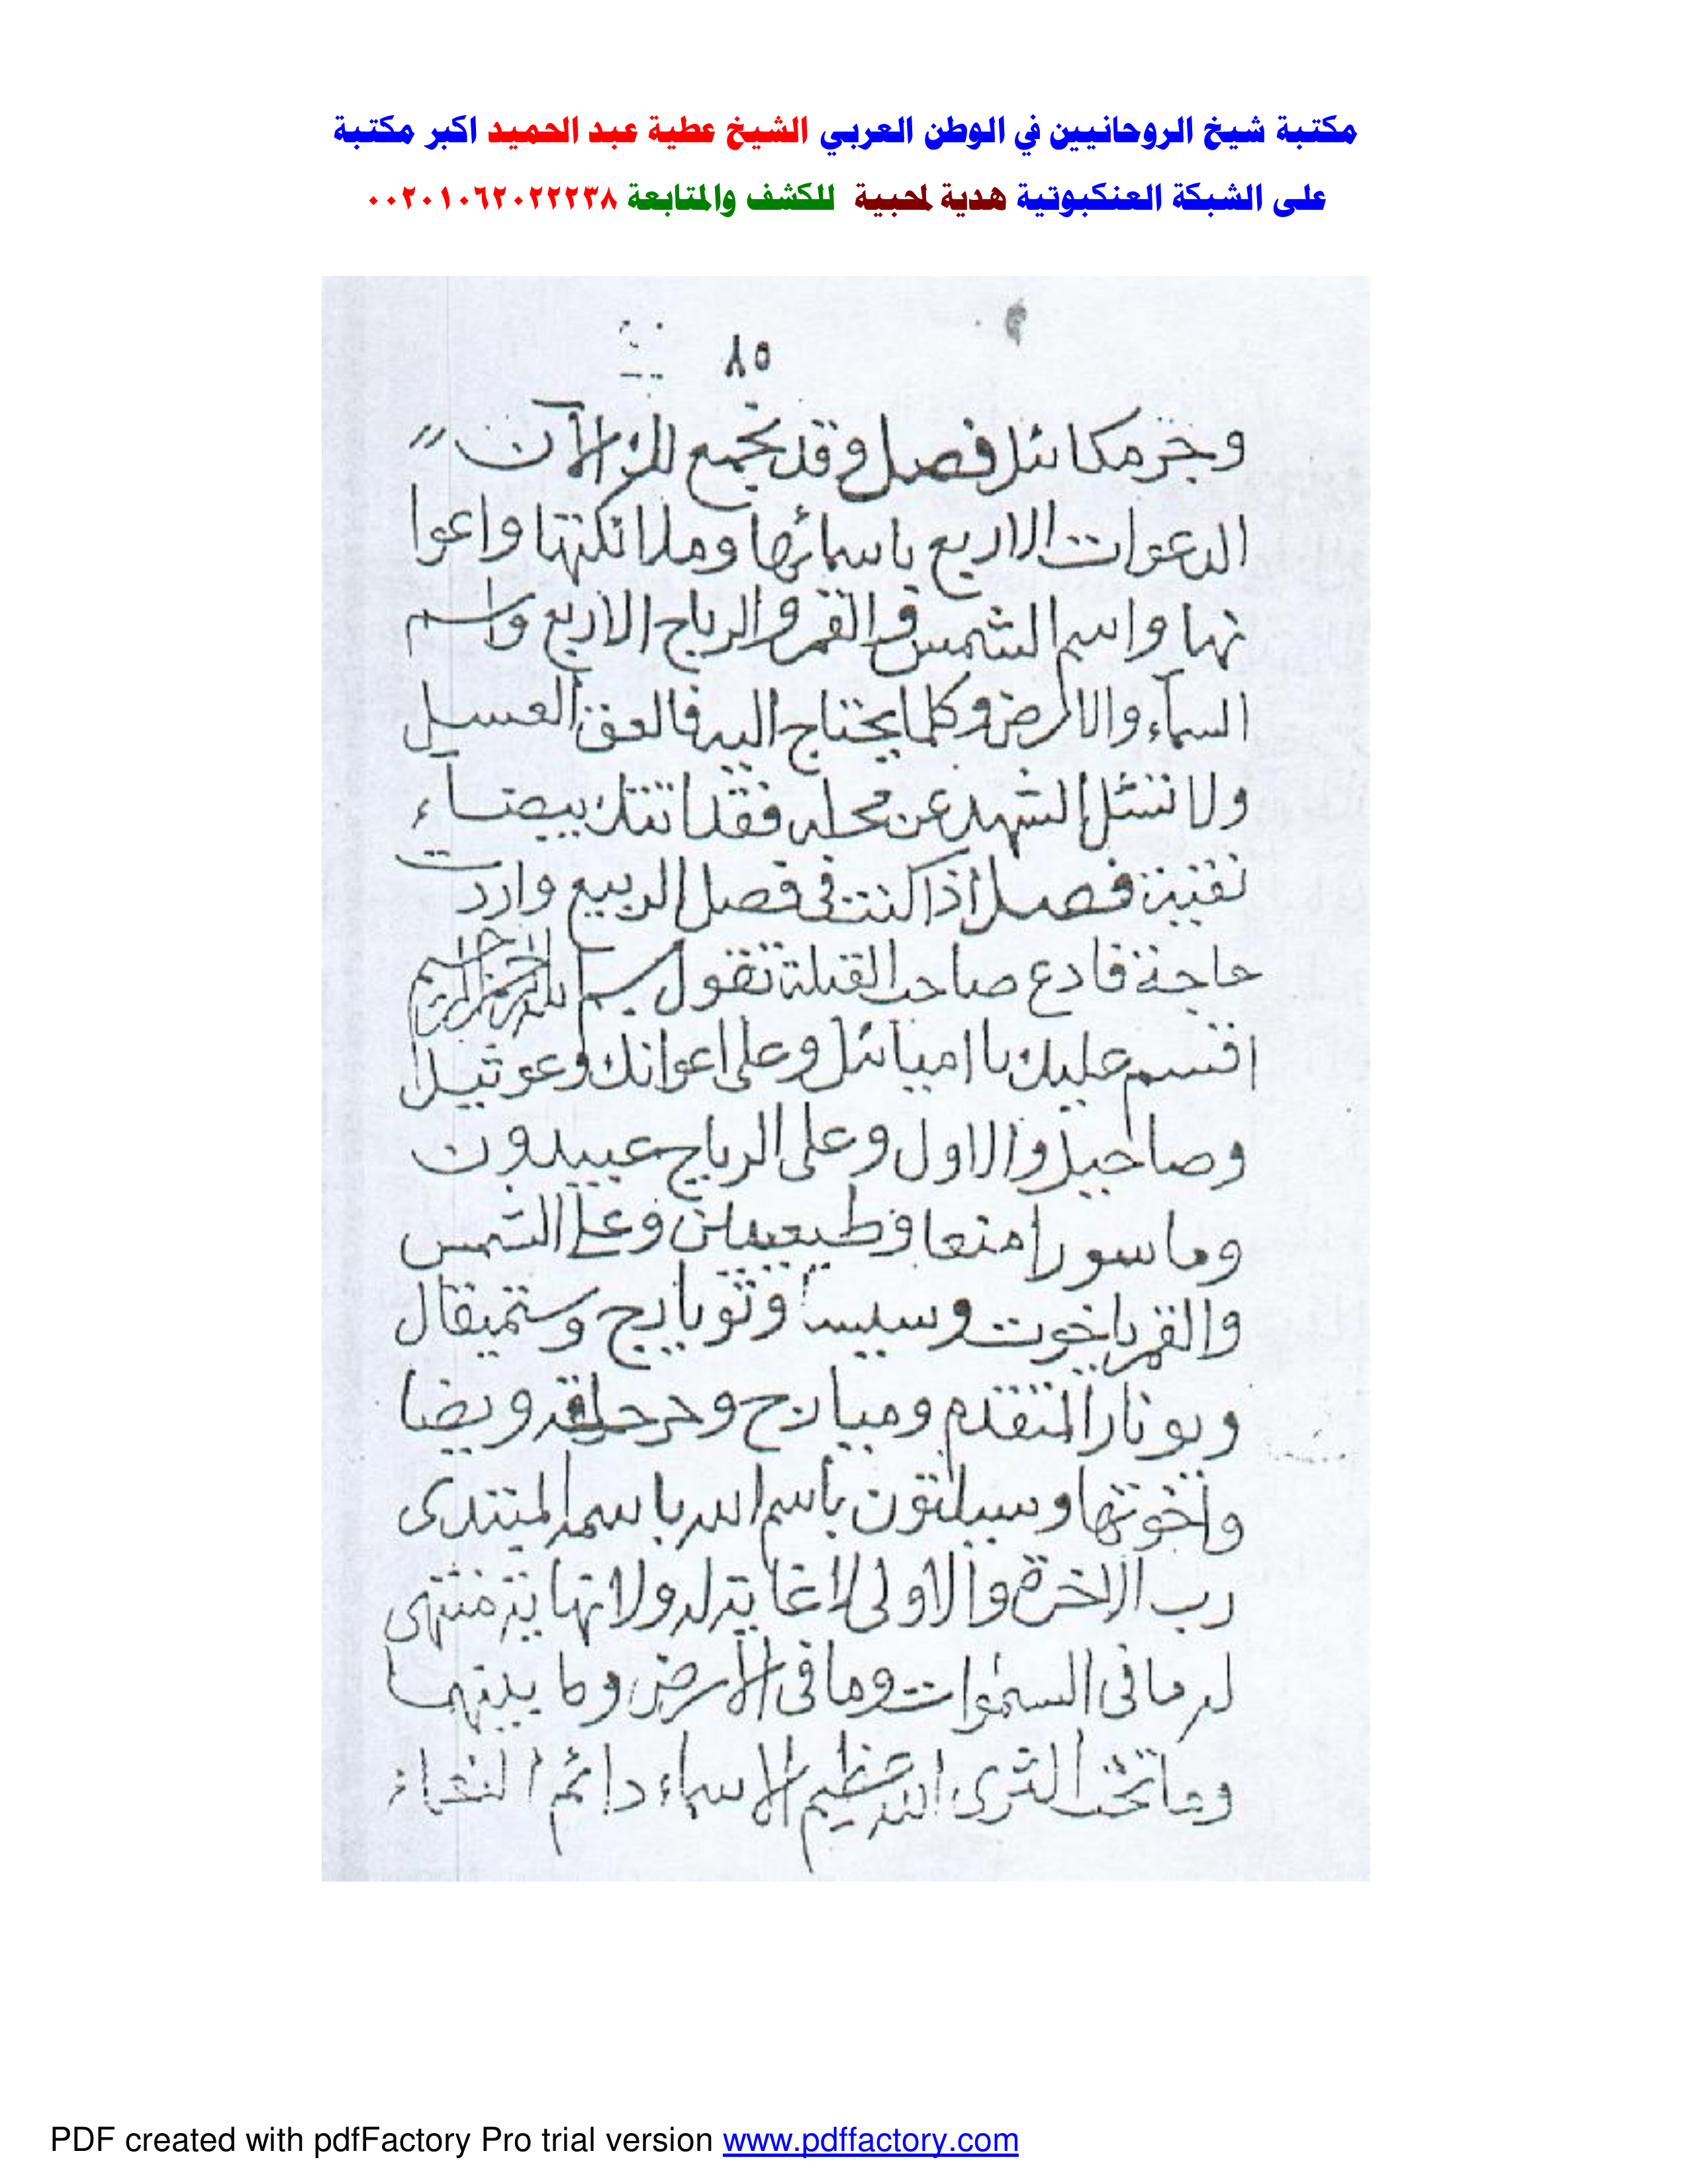 مكتبة شيخ الروحانيين في الوطن العربي الشيخ عطية عبد الحميد اكبر مكتبة
على الشبكة العنكبوتية هدية لمحبية للكشف والمتابعة ٠٠٢٠١٠٦٢٠٢٢٢٣٨
٨٥
مكائل فصل وقد نجمع لك الآن
الدعوات الاربع باسمائها وملائكتها واعوا
نها واسم الشمس والقمر والرياح الاربع واسم
السمآء والارض وكلما يحتاج اليه فالعق العسل
ولا تسئل الشهد عن محله فقد اتتك بيضآء
نقية فصل اذا كنت فى فصل الربيع واردت
حاجة فادع صاحب القبلة تقول بسم الله الرحمن الرحيم
اقسم عليك يا اميائل وعلى اعوانك وعوثيل
وصاحبيل والاول وعلى الرياح عبيدون
وماسور امنعا وعلى الشمس
والقمر ياخوت وسيسا وستميقال
ويونار المتقدم ومياريح ويضا
واخوتها وسيلتون باسم الله باسمه المبتدى
رب الاخرة والاولى لا غاية له ولا نهاية منتهى
له ما فى السموات وما فى الارض وما بينهما
وما تحت الثرى الله عظيم الاسماء دائم النعماء
PDF created with pdfFactory Pro trial version www.pdffactory.com